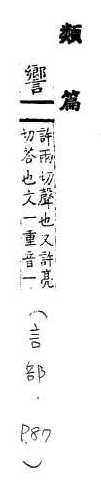 類篇
響
許兩切聲也又許亮
切荅也文一重音一
(言部.P.87)